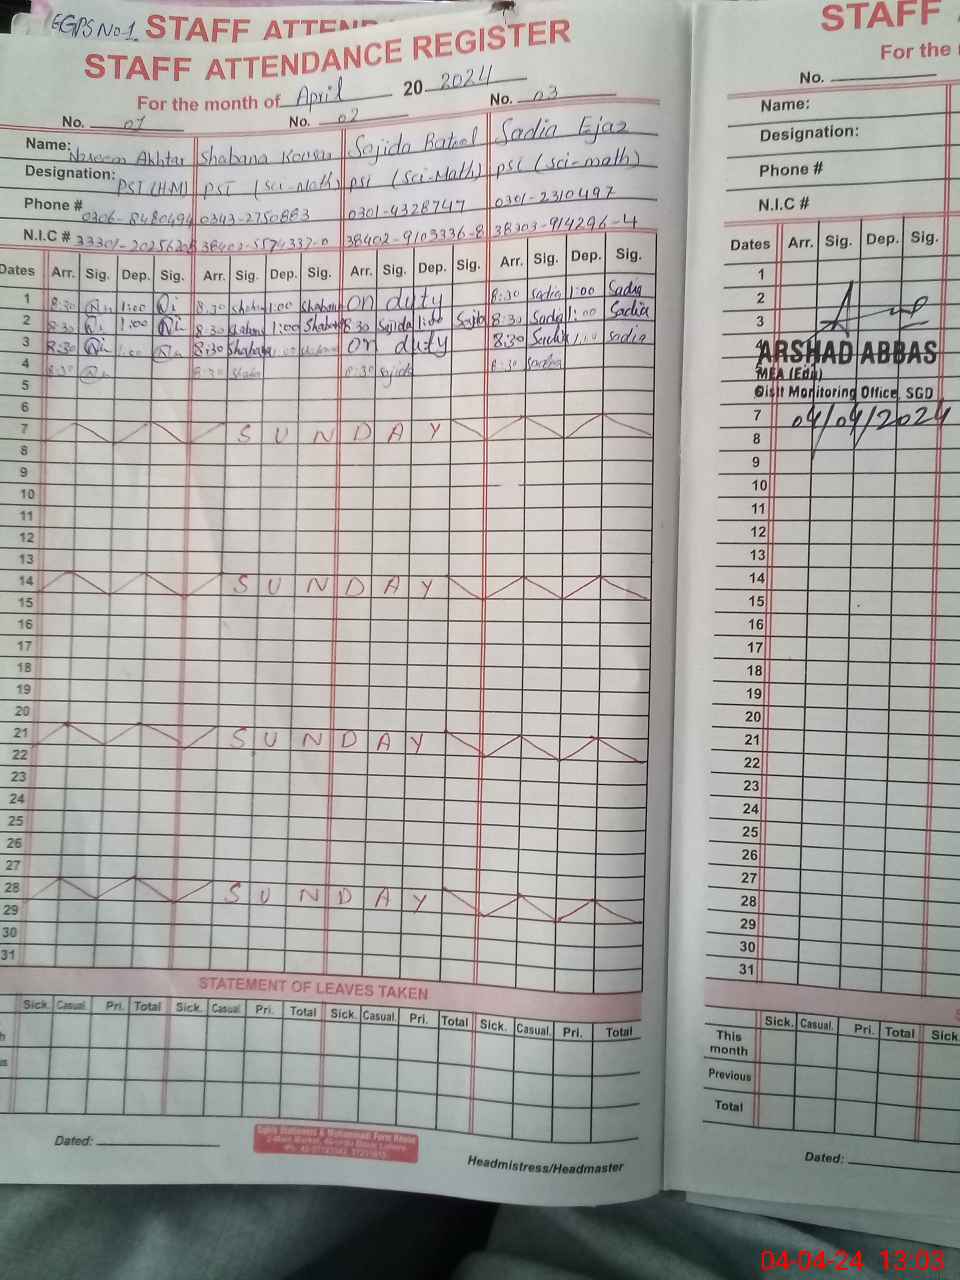 EGPS No 1. STAFF ATTEN
STAFF ATTENDANCE REGISTER
For the month of April 20 2024
No. 01 No. 02 No. 03
Name: Naseem Akhtar Shabana Kousar Sajida Batool Sadia Ejaz
Designation: PST (HM) PST (Sci-Math) PST (Sci-Math) PST (Sci-math)
Phone # 0306-8480494 0343-2750883 0301-4328747 0301-2310497
N.I.C # 38402-5574337-0 38402-9103336-8 38303-914296-4
Dates Arr. Sig. Dep. Sig. Arr. Sig. Dep. Sig. Arr. Sig. Dep. Sig. Arr. Sig. Dep. Sig.
1 8:30 1:00 8:30 Shabana 1:00 Shabana on duty 8:30 Sadia 1:00 Sadia
2 8:30 1:00 8:30 Shabana 1:00 Shabana 8:30 Sajida 1:00 Sajida 8:30 Sadia 1:00 Sadia
3 8:30 1:00 8:30 Shabana 1:00 on duty 8:30 Sadia 1:00 Sadia
4 8:30 8:30 Shaba 8:30 Sajida 8:30 Sadia
5
6
7 SUNDAY
8
9
10
11
12
13
14 SUNDAY
15
16
17
18
19
20
21 SUNDAY
22
23
24
25
26
27
28 SUNDAY
29
30
31
STATEMENT OF LEAVES TAKEN
Sick. Casual. Pri. Total Sick. Casual Pri. Total Sick. Casual. Pri. Total Sick. Casual. Pri. Total
Dated:
Headmistress/Headmaster
STAFF
For the
No.
Name:
Designation:
Phone #
N.I.C #
Dates Arr. Sig. Dep. Sig.
1
2
3
4
ARSHAD ABBAS
MEA (Edu)
Distt Monitoring Office, SGD
7 04/04/2024
8
9
10
11
12
13
14
15
16
17
18
19
20
21
22
23
24
25
26
27
28
29
30
31
Sick. Casual. Pri. Total Sick.
This month
Previous
Total
Dated:
04-04-24 13:03